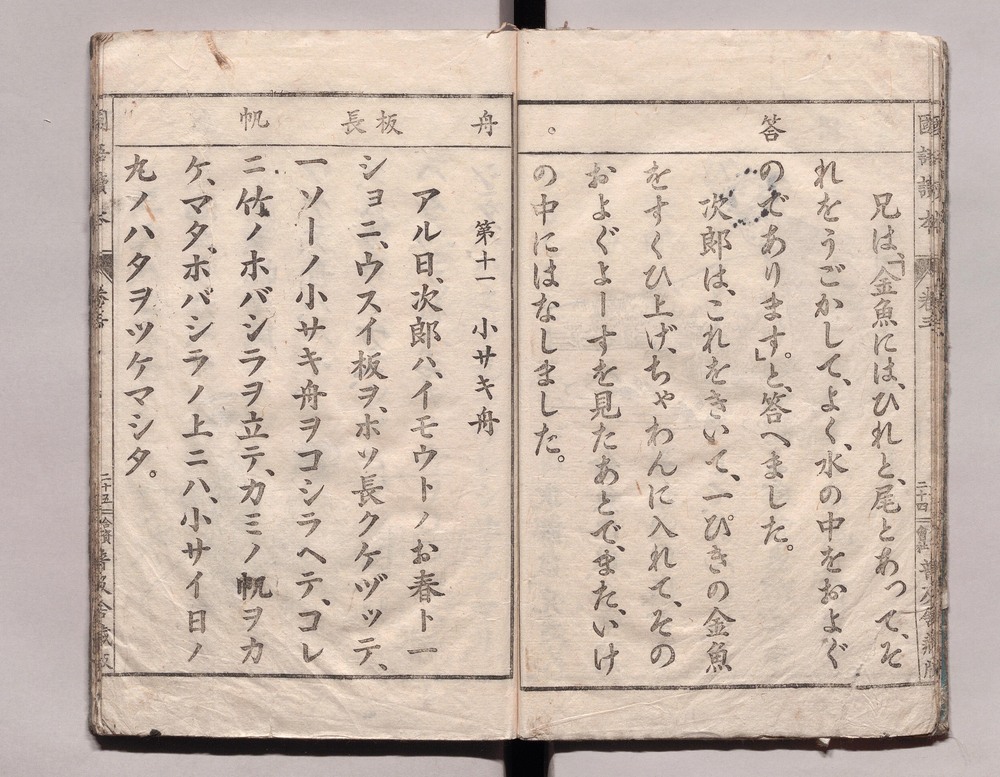 答
兄は、「金魚には、ひれと、尾とあつて、そ
れをうごかして、よく、水の中をおよぐ
のであります。」と、答へました。
次郎は、これをきいて、一ぴきの金魚
をすくひ上げ、ちやわんに入れて、その
およぐよーすを見たあとで、また、いけ
の中にはなしました。
舟
板
長
帆
第十一 小サキ舟
アル日、次郎ハ、イモウトノお春ト一
シヨニ、ウスイ板ヲ、ホソ長クケヅツテ、
一ソーノ小サキ舟ヲコシラヘテ、コレ
ニ竹ノホバシラヲ立テ、カミノ帆ヲカ
ケ、マタ、ホバシラノ上ニハ、小サイ日ノ
丸ノハタヲツケマシタ。